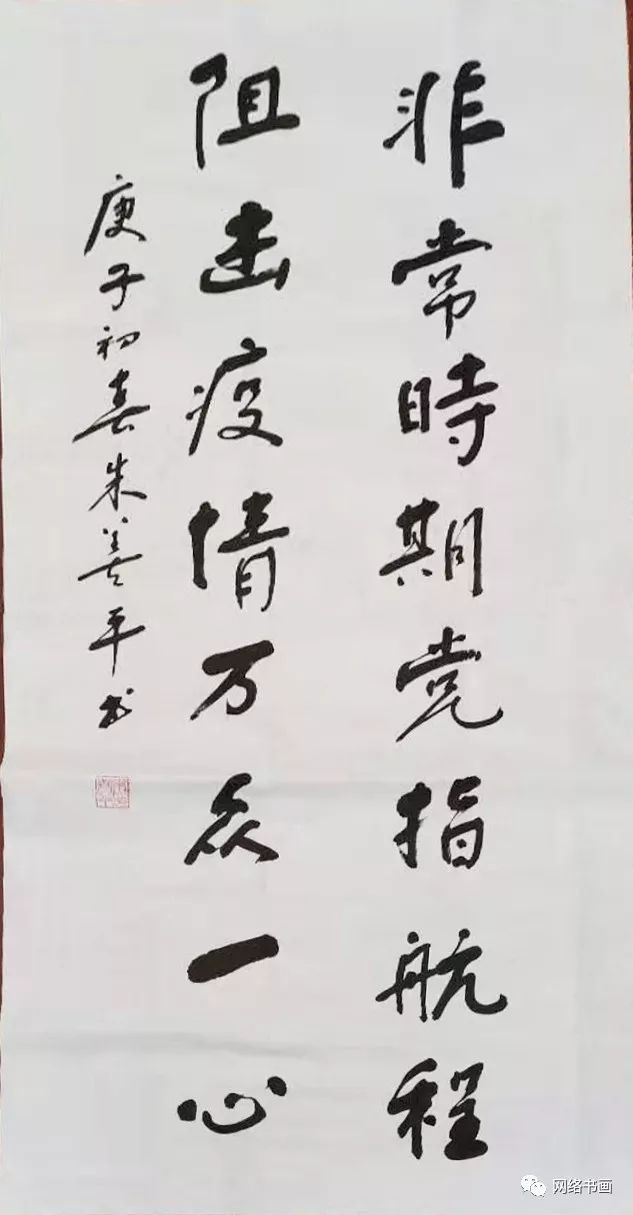 非常時期党指航程
阻击疫情万众一心
庚子初春朱善平书
网络书画